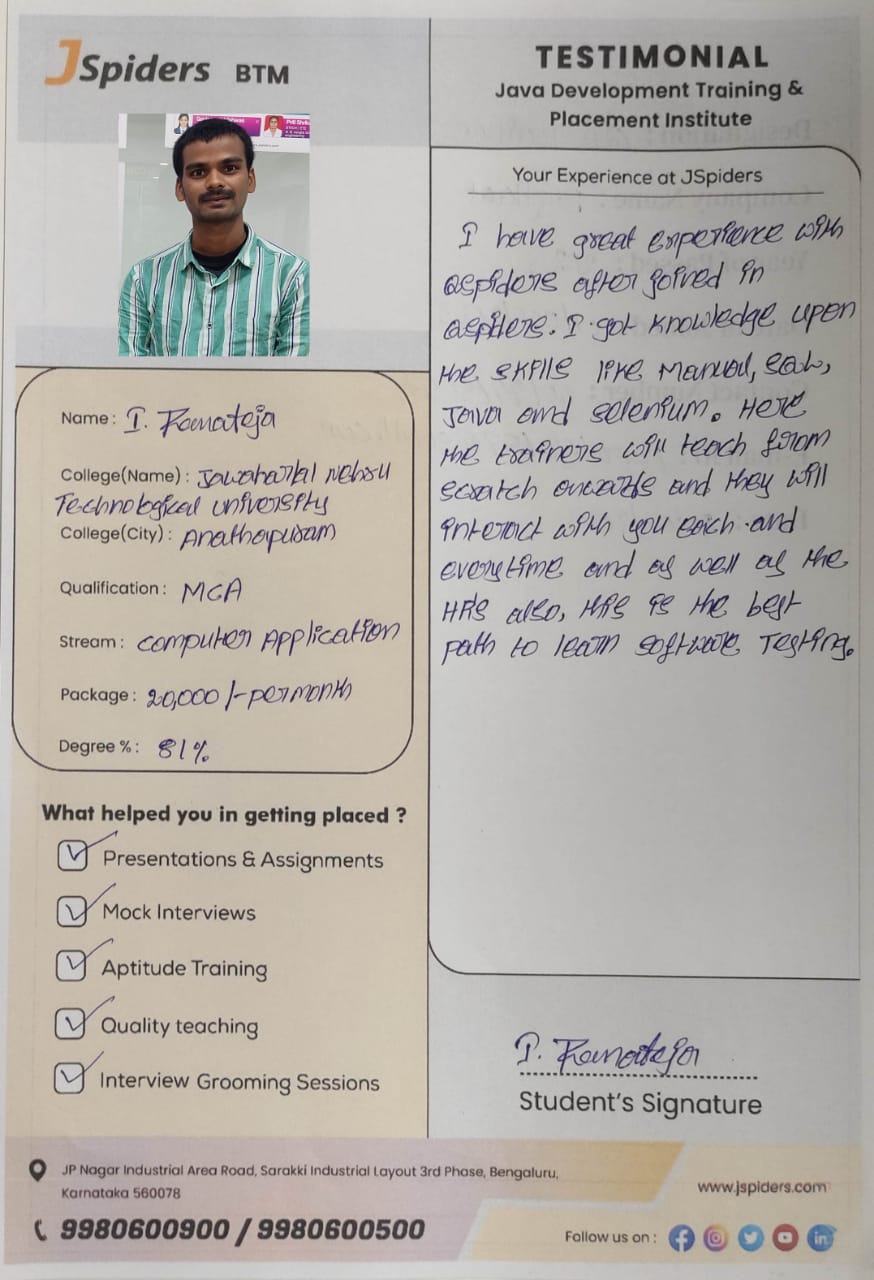 JSpiders BTM
TESTIMONIAL
Java Development Training &
Placement Institute
Your Experience at JSpiders
I have great experience with
Qspiders after joined in
Qspiders. I got knowledge upon
the skills like Manual, SQL,
Java and selenium. Here
the trainers will teach from
scratch onwards and they will
interact with you each and
everytime and as well as the
HR's also, this is the best
path to learn software Testing.
Name : I. Ramateja
College(Name) : Jawaharlal Nehru
Technological university
College(City) : Anathapuram
Qualification : MCA
Stream : Computer Application
Package : 20,000/- per month
Degree % : 81%
What helped you in getting placed ?
Presentations & Assignments
Mock Interviews
Aptitude Training
Quality teaching
Interview Grooming Sessions
I. Ramateja
Student's Signature
JP Nagar Industrial Area Road, Sarakki Industrial Layout 3rd Phase, Bengaluru,
Karnataka 560078
9980600900 / 9980600500
www.jspiders.com
Follow us on :